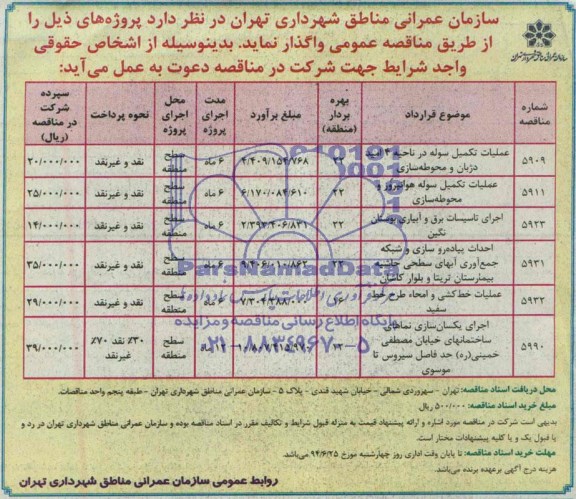 سازمان عمرانی مناطق شهرداری تهران در نظر دارد پروژه‌های ذیل را
از طریق مناقصه عمومی واگذار نماید. بدینوسیله از اشخاص حقوقی
واجد شرایط جهت شرکت در مناقصه دعوت به عمل می‌آید:
شماره مناقصه | موضوع قرارداد | بهره بردار (منطقه) | مبلغ برآورد | مدت اجرای پروژه | محل اجرای پروژه | نحوه پرداخت | سپرده شرکت در مناقصه (ریال)
۵۹۰۹ | عملیات تکمیل سوله در ناحیه ۴ دژبان و محوطه‌سازی | ۲۲ | ۴/۴۰۹/۱۵۴/۷۶۸ | ۶ ماه | سطح منطقه | نقد و غیرنقد | ۲۰/۰۰۰/۰۰۰
۵۹۱۱ | عملیات تکمیل سوله هوانیروز و محوطه‌سازی | ۲۲ | ۶/۱۷۰/۰۸۴/۶۱۰ | ۶ ماه | سطح منطقه | نقد و غیرنقد | ۲۵/۰۰۰/۰۰۰
۵۹۲۳ | اجرای تاسیسات برق و آبیاری بوستان نگین | ۲۲ | ۲/۳۹۲/۴۰۶/۸۳۱ | ۶ ماه | سطح منطقه | نقد و غیرنقد | ۱۴/۰۰۰/۰۰۰
۵۹۳۱ | احداث پیاده‌رو سازی و شبکه جمع‌آوری آبهای سطحی حاشیه بیمارستان تریتا و بلوار کاشان | ۲۲ | ۹/۴۰۶/۰۱۰/۸۶۲ | ۶ ماه | سطح منطقه | نقد و غیرنقد | ۳۵/۰۰۰/۰۰۰
۵۹۳۲ | عملیات خط‌کشی و امحاء طرح خط سفید | ماه | سطح منطقه | نقد و غیرنقد | ۲۹/۰۰۰/۰۰۰
۵۹۹۰ | اجرای یکسان‌سازی نماهای ساختمانهای خیابان مصطفی خمینی(ره) حد فاصل سیروس تا موسوی | ۱۲ ماه | سطح منطقه | ۳۰٪ نقد ۷۰٪ غیرنقد | ۳۹/۰۰۰/۰۰۰
ParsNamadData
پایگاه اطلاع رسانی مناقصه و مزایده
۰۲۱-۸۸۳۴۹۶۷۰-۵
محل دریافت اسناد مناقصه: تهران - سهروردی شمالی - خیابان شهید قندی - پلاک ۵ - سازمان عمرانی مناطق شهرداری تهران - طبقه پنجم واحد مناقصات.
مبلغ خرید اسناد مناقصه: ۵۰۰/۰۰۰ ریال
بدیهی است شرکت در مناقصه مورد اشاره و ارائه پیشنهاد قیمت به منزله قبول شرایط و تکالیف مقرر در اسناد مناقصه بوده و سازمان عمرانی مناطق شهرداری تهران در رد و
یا قبول یک و یا کلیه پیشنهادات مختار است.
مهلت خرید اسناد مناقصه: تا پایان وقت اداری روز چهارشنبه مورخ ۹۴/۶/۲۵ می‌باشد.
هزینه درج آگهی برعهده برنده می‌باشد.
روابط عمومی سازمان عمرانی مناطق شهرداری تهران